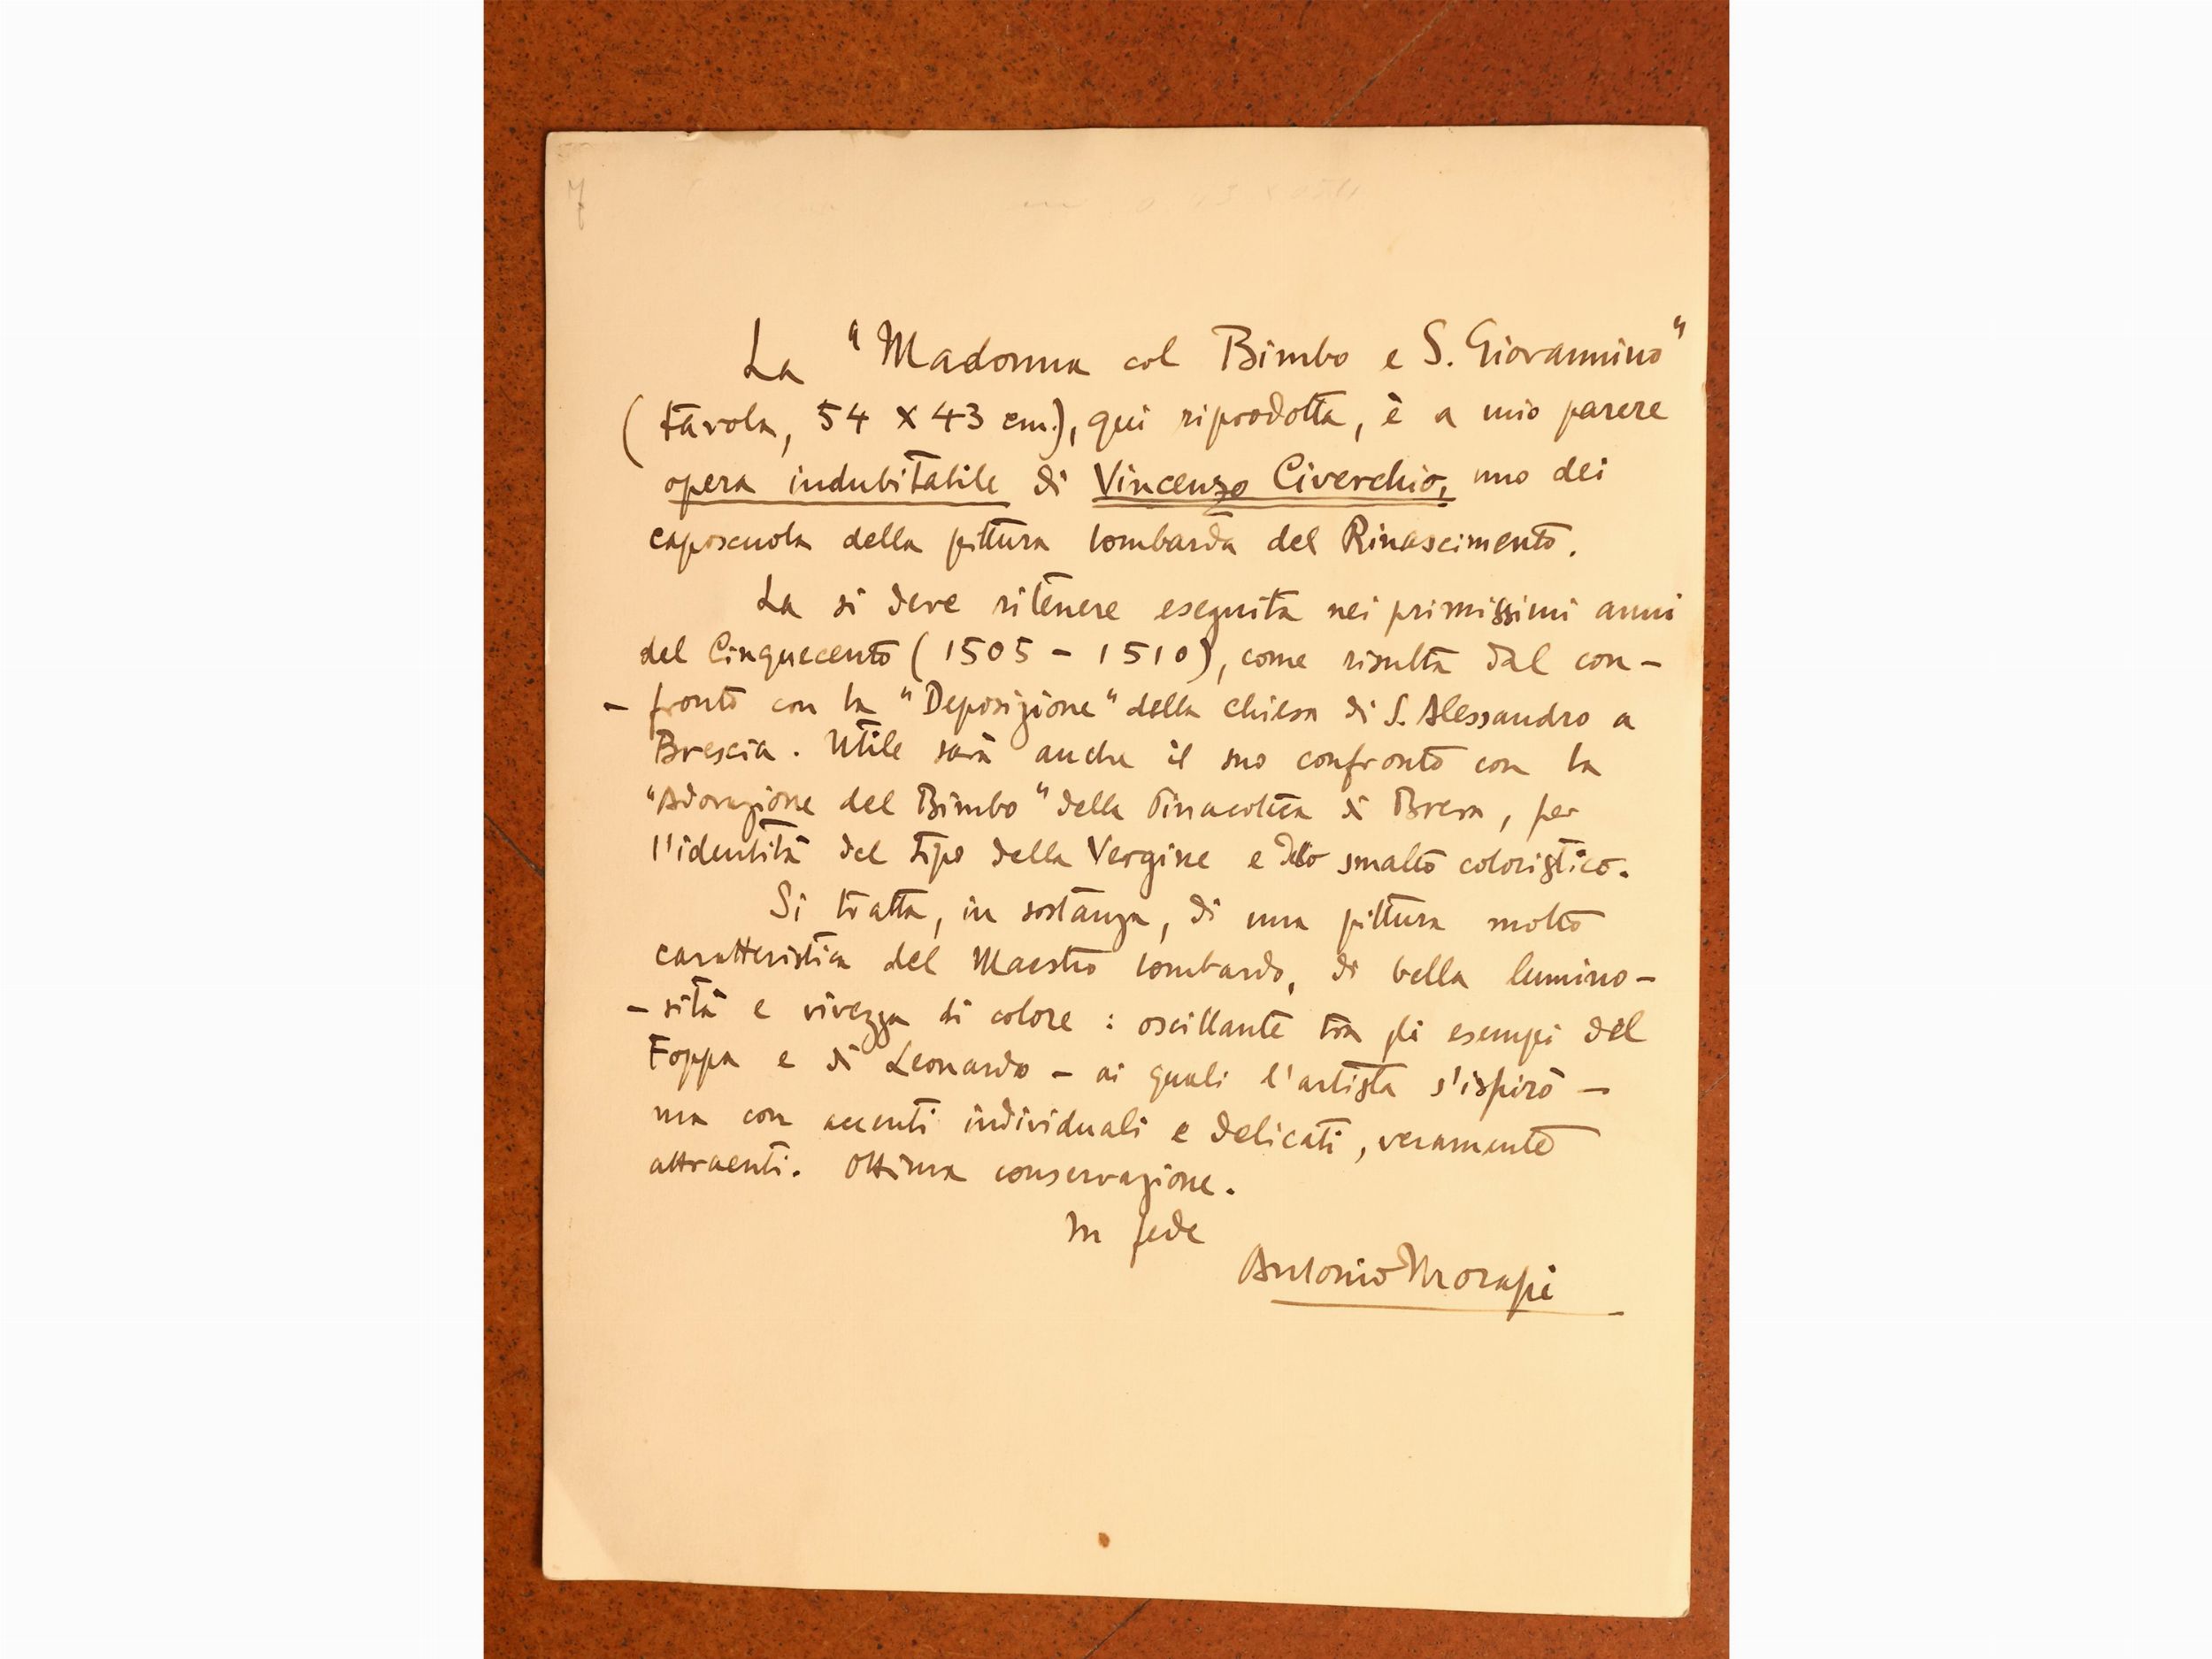 La "Madonna col Bimbo e S. Giovannino"
(tavola, 54 x 43 cm.), qui riprodotta, è a mio parere
opera indubitabile di Vincenzo Civerchio, uno dei
caposcuola della pittura lombarda del Rinascimento.
La si deve ritenere eseguita nei primissimi anni
del Cinquecento (1505 - 1510), come risulta dal con-
- fronto con la "Deposizione" della chiesa di S. Alessandro a
Brescia. Utile sarà anche il suo confronto con la
"Adorazione del Bimbo" della Pinacoteca di Brera, per
l'identità del tipo della Vergine e dello smalto coloristico.
Si tratta, in sostanza, di una pittura molto
caratteristica del Maestro lombardo, di bella lumino-
- sità e vivezza di colore : oscillante tra gli esempi del
Foppa e di Leonardo - ai quali l'artista s'ispirò -
ma con accenti individuali e delicati, veramente
attraenti. Ottima conservazione.
In fede
Antonio Morassi